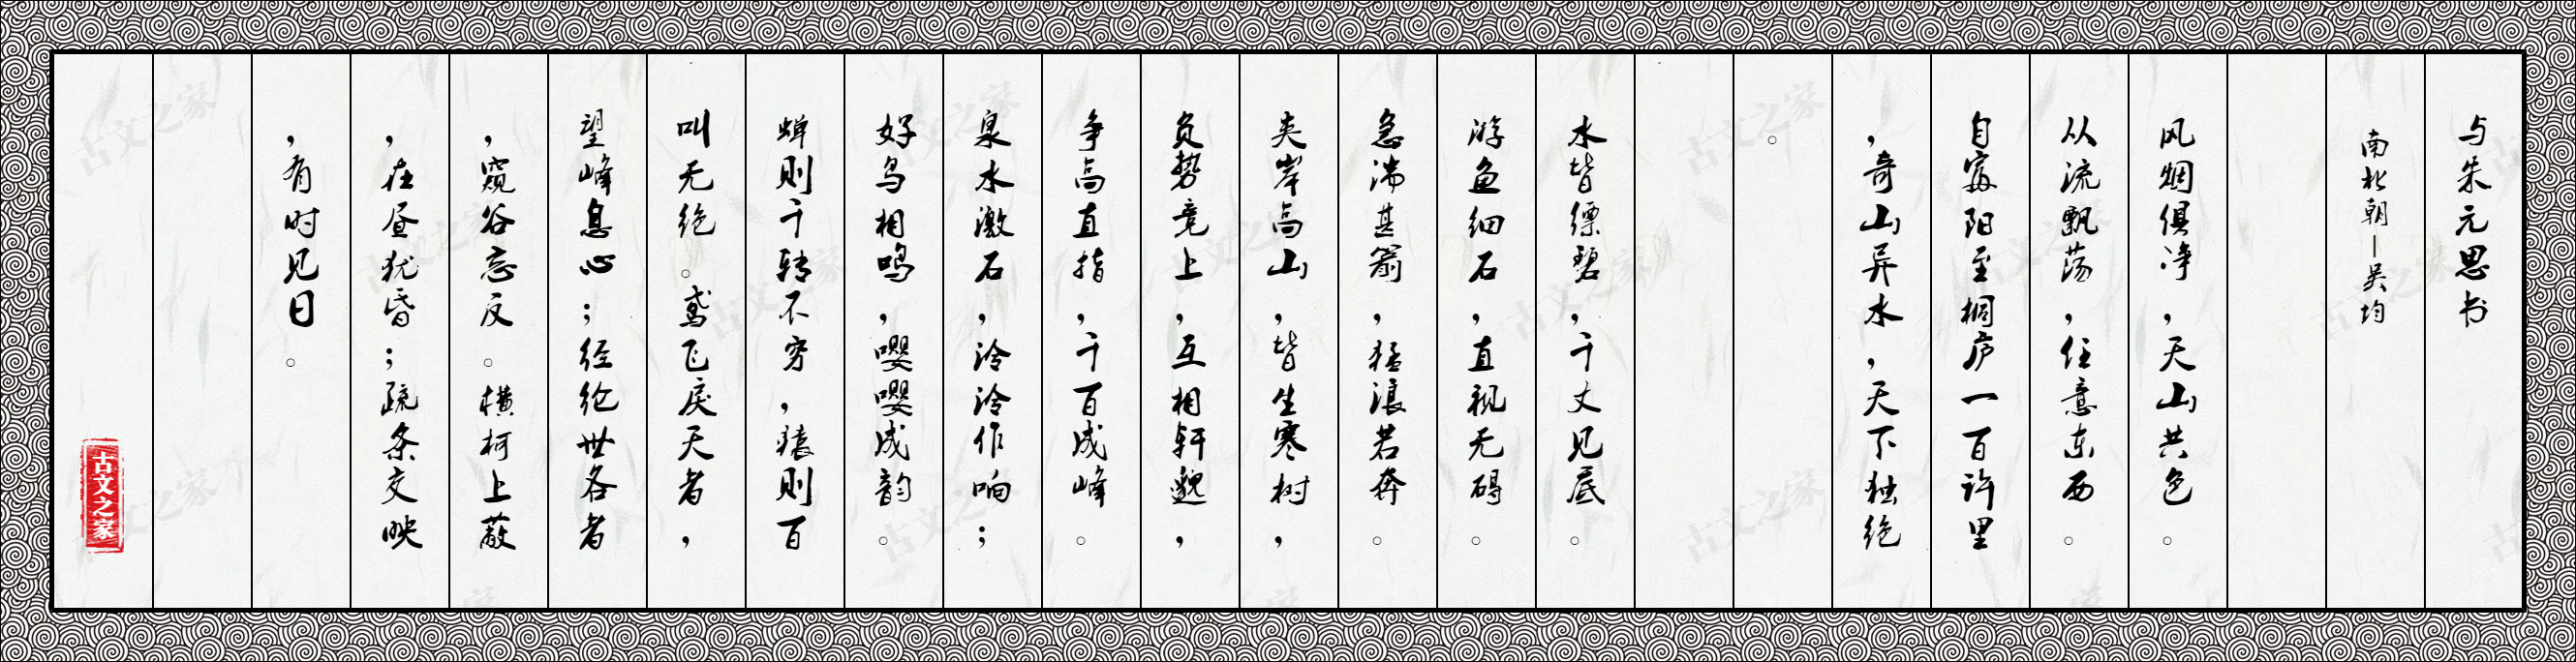 与朱元思书
南北朝－吴均
风烟俱净，天山共色。
从流飘荡，任意东西。
自富阳至桐庐一百许里
，奇山异水，天下独绝
。
水皆缥碧，千丈见底。
游鱼细石，直视无碍。
急湍甚箭，猛浪若奔。
夹岸高山，皆生寒树，
负势竞上，互相轩邈，
争高直指，千百成峰。
泉水激石，泠泠作响；
好鸟相鸣，嘤嘤成韵。
蝉则千转不穷，猿则百
叫无绝。鸢飞戾天者，
望峰息心；经纶世务者
，窥谷忘反。横柯上蔽
，在昼犹昏；疏条交映
，有时见日。
古文之家